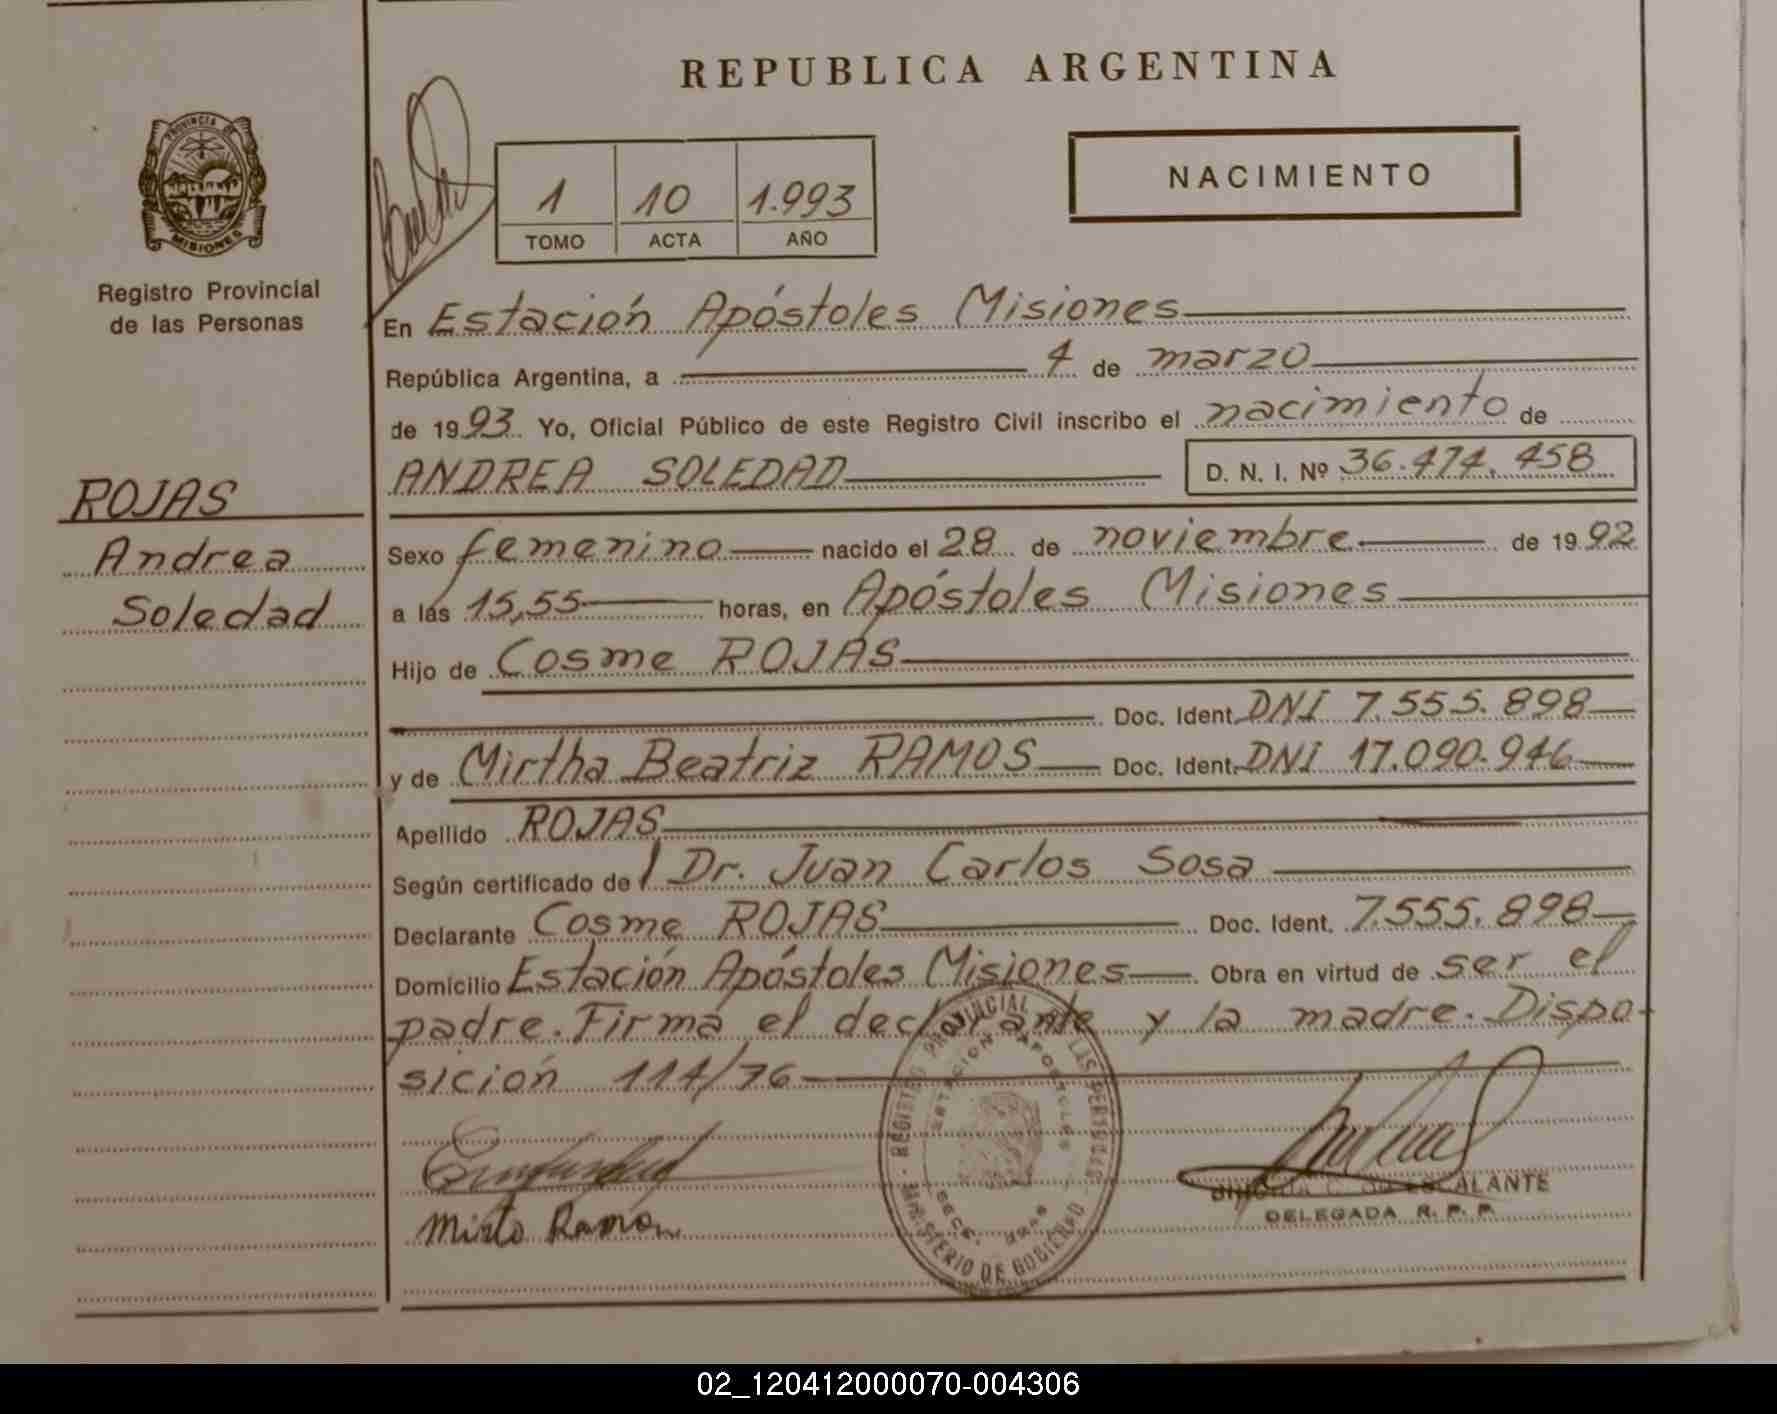 REPUBLICA ARGENTINA
PROVINCIA DE
MISIONES
Registro Provincial
de las Personas
1 10 1.993
TOMO ACTA AÑO
NACIMIENTO
En Estación Apóstoles Misiones
República Argentina, a 4 de marzo
de 1993 Yo, Oficial Público de este Registro Civil inscribo el nacimiento de
ANDREA SOLEDAD D. N. I. Nº 36.474.458
ROJAS
Andrea
Soledad
Sexo femenino nacido el 28 de noviembre de 1992
a las 15,55 horas, en Apóstoles Misiones
Hijo de Cosme ROJAS
Doc. Ident. DNI 7.555.898
y de Mirtha Beatriz RAMOS Doc. Ident. DNI 17.090.946
Apellido ROJAS
Según certificado de Dr. Juan Carlos Sosa
Declarante Cosme ROJAS Doc. Ident. 7.555.898
Domicilio Estación Apóstoles Misiones Obra en virtud de ser el
padre. Firma el declarante y la madre. Dispo-
sición 114/76
REGISTRO PROVINCIAL DE LAS PERSONAS
ESTACION APOSTOLES
MINISTERIO DE GOBIERNO
ESCALANTE
DELEGADA R. P. P.
02_120412000070-004306